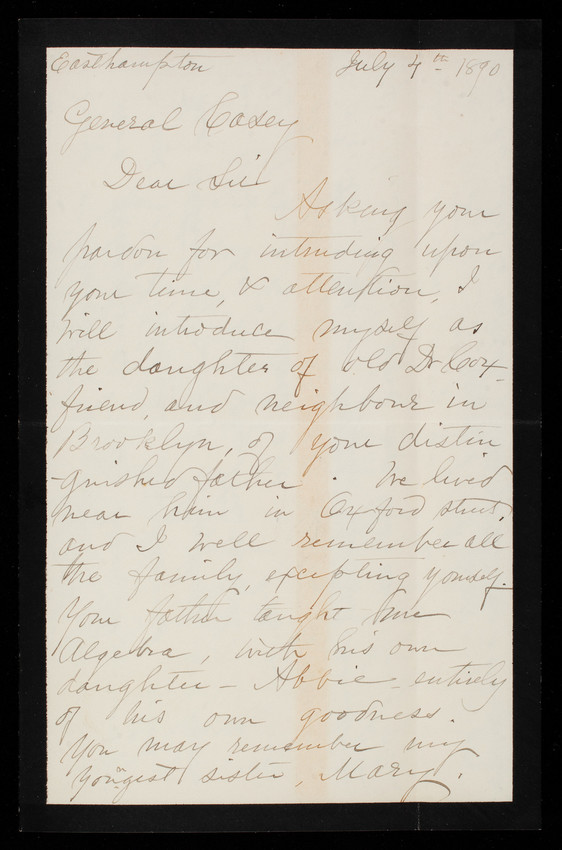 Easthampton July 4th 1890
General Casey
Dear Sir
Asking your
pardon for intruding upon
your time, & attention, I
will introduce myself as
the daughter of old Dr Cox
friend, and neighbour in
Brooklyn, of your distin
guished father. We lived
near him in Oxford street,
and I well remember all
the family, excepting yourself.
Your father taught me
Algebra, with his own
daughter - Abbie - entirely
of his own goodness.
You may remember my
youngest sister, Mary.